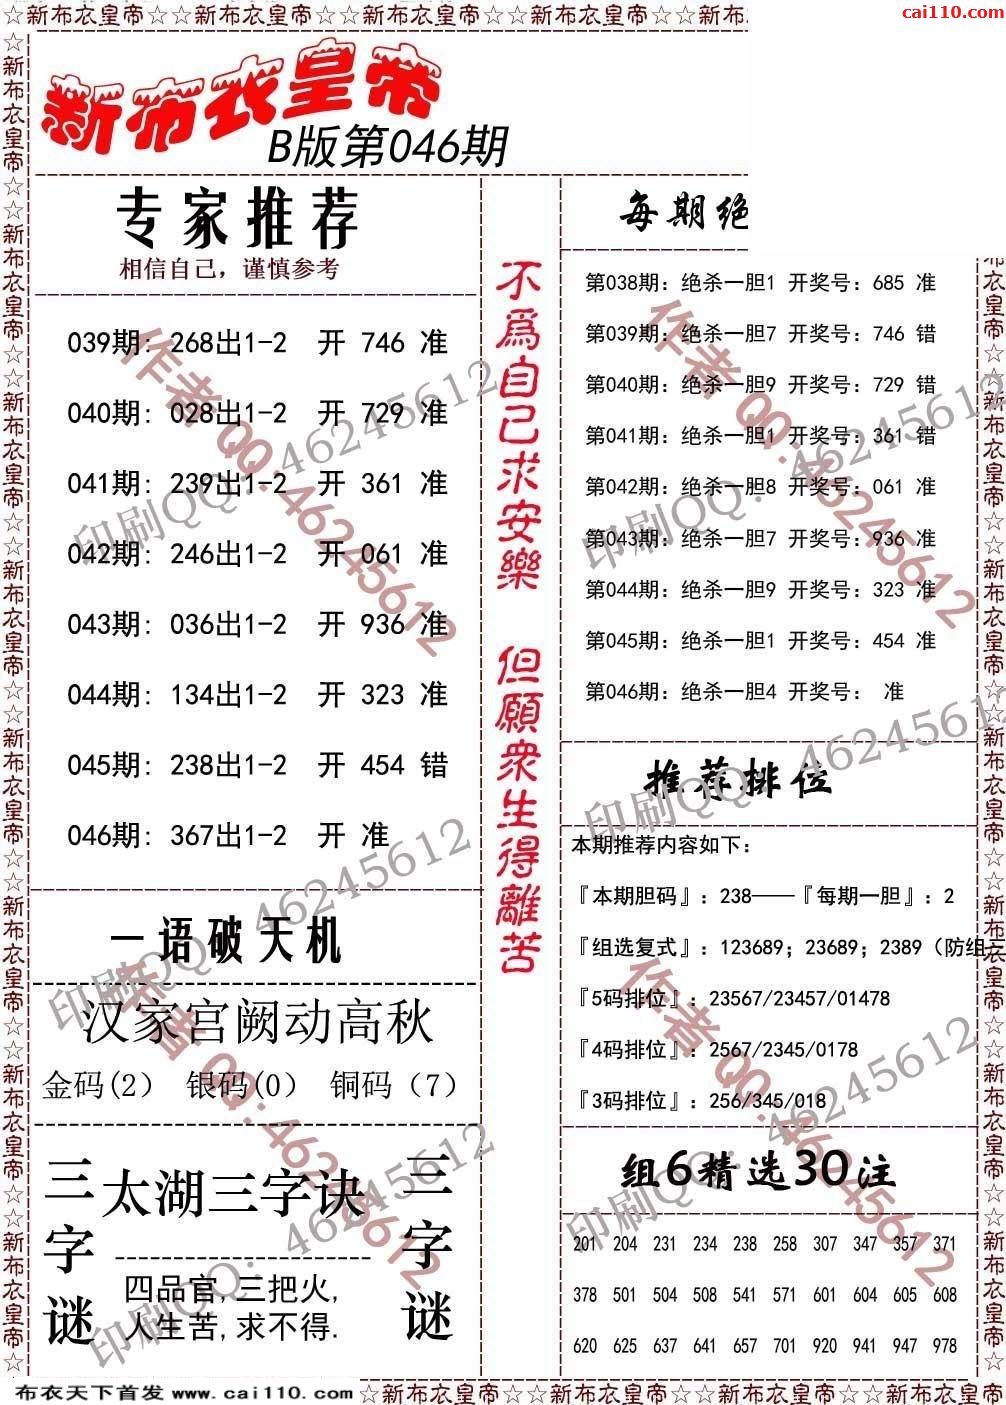 ☆新布衣皇帝☆☆新布衣皇帝☆☆新布衣皇帝☆☆新布衣皇帝☆☆新布
cai110.com
新布衣皇帝
B版第046期
专家推荐
相信自己，谨慎参考
039期: 268出1-2 开 746 准
040期: 028出1-2 开 729 准
041期: 239出1-2 开 361 准
042期: 246出1-2 开 061 准
043期: 036出1-2 开 936 准
044期: 134出1-2 开 323 准
045期: 238出1-2 开 454 错
046期: 367出1-2 开 准
一语破天机
汉家宫阙动高秋
金码(2) 银码(0) 铜码（7）
三字谜
太湖三字诀
四品官,三把火,
人生苦,求不得.
三字谜
不爲自己求安樂 但願衆生得離苦
每期绝
第038期: 绝杀一胆1 开奖号: 685 准
第039期: 绝杀一胆7 开奖号: 746 错
第040期: 绝杀一胆9 开奖号: 729 错
第041期: 绝杀一胆1 开奖号: 361 错
第042期: 绝杀一胆8 开奖号: 061 准
第043期: 绝杀一胆7 开奖号: 936 准
第044期: 绝杀一胆9 开奖号: 323 准
第045期: 绝杀一胆1 开奖号: 454 准
第046期: 绝杀一胆4 开奖号: 准
推荐排位
本期推荐内容如下:
『本期胆码』: 238——『每期一胆』: 2
『组选复式』: 123689; 23689; 2389（防组三
『5码排位』: 23567/23457/01478
『4码排位』: 2567/2345/0178
『3码排位』: 256/345/018
组6精选30注
201 204 231 234 238 258 307 347 357 371
378 501 504 508 541 571 601 604 605 608
620 625 637 641 657 701 920 941 947 978
作者QQ:46245612
印刷QQ:46245612
作者QQ:46245612
印刷QQ:46245612
印刷QQ:46245612
印刷QQ:46245612
作者QQ:46245612
作者QQ:46245612
印刷QQ:46245612
印刷QQ:46245612
布衣天下首发 www.cai110.com
☆新布衣皇帝☆☆新布衣皇帝☆☆新布衣皇帝☆☆新布衣皇帝☆